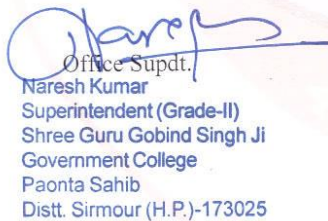 Office Supdt.
Naresh Kumar
Superintendent (Grade-II)
Shree Guru Gobind Singh Ji
Government College
Paonta Sahib
Distt. Sirmour (H.P.)-173025